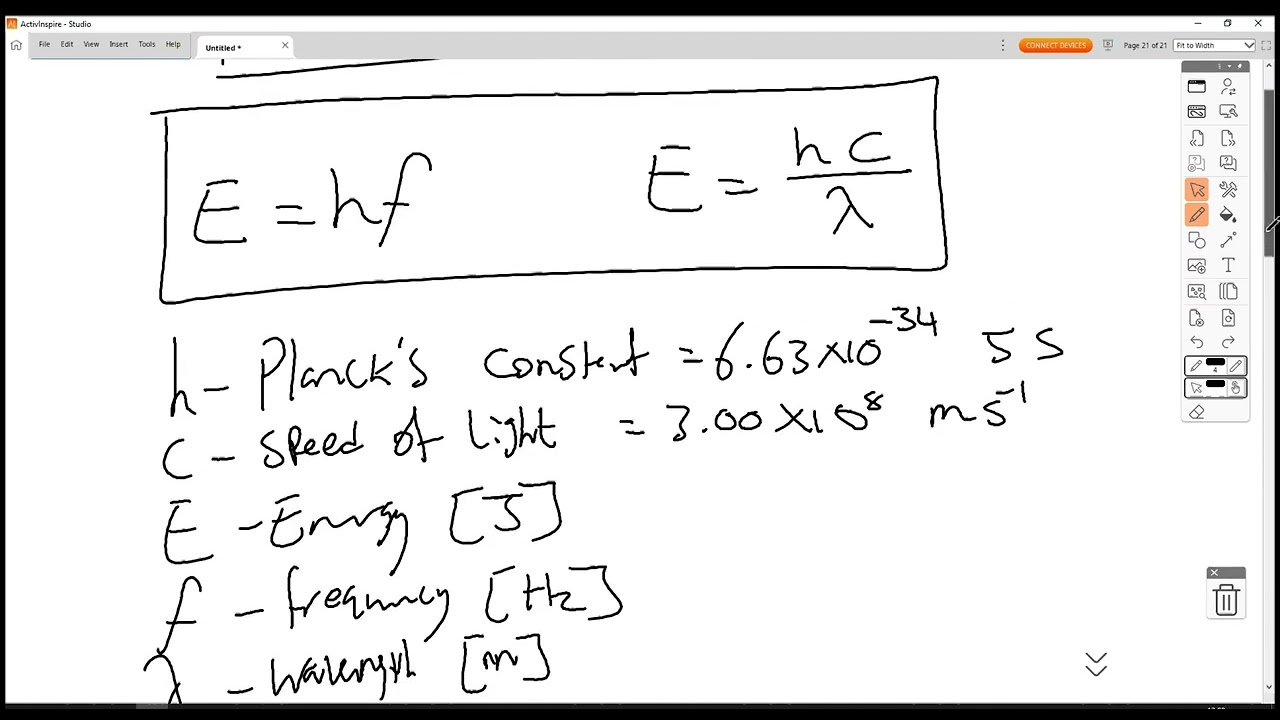 ActivInspire - Studio
File Edit View Insert Tools Help
Untitled *
CONNECT DEVICES
Page 21 of 21
Fit to Width
E = hf
E = hc/λ
h - Planck's constant = 6.63 × 10⁻³⁴ J s
c - speed of light = 3.00 × 10⁸ m s⁻¹
E - Energy [J]
f - frequency [Hz]
λ - [m]
4